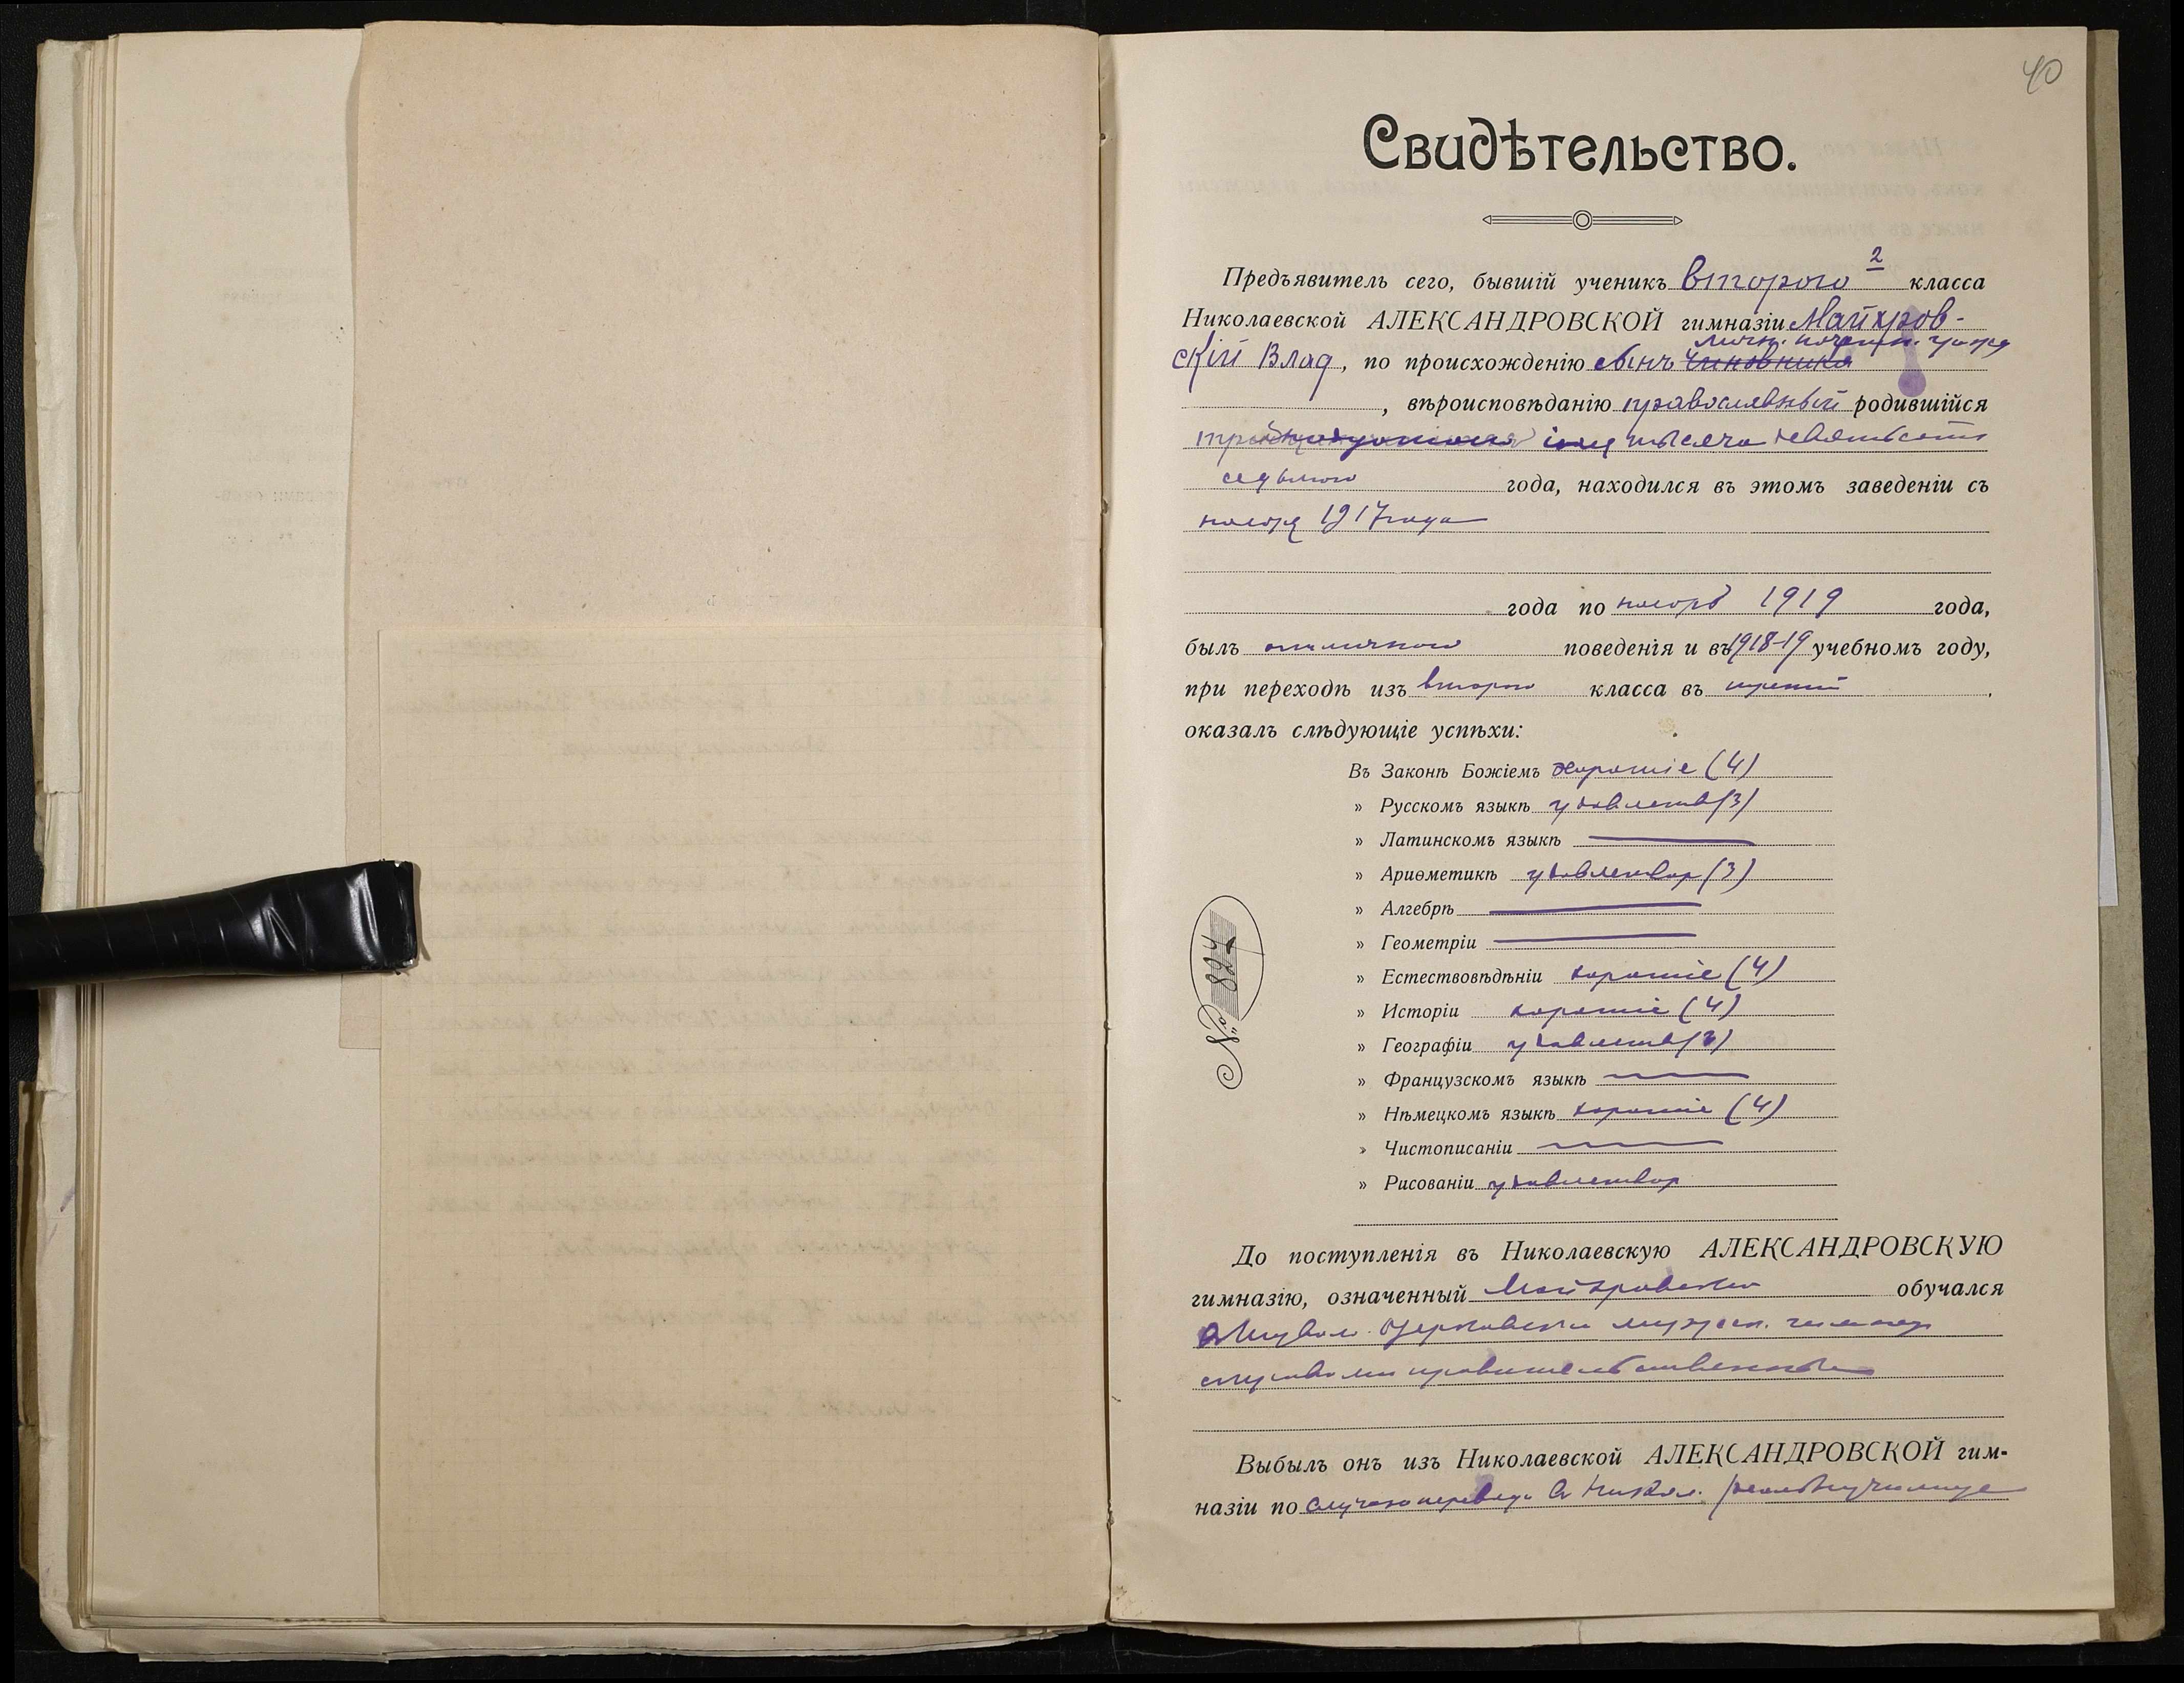 40
Свидѣтельство.
Предъявитель сего, бывшій ученикъ второго 2 класса
Николаевской АЛЕКСАНДРОВСКОЙ гимназіи Майхров-
личн. почетн. гражд
скій Влад, по происхожденію сынъ чиновника
, вѣроисповѣданію православный родившійся
тысяча девятьсотъ
седьмого года, находился въ этомъ заведеніи съ
ноября 1917 года
года по ноябрь 1919 года,
былъ отличного поведенія и въ 1918-19 учебномъ году,
при переходѣ изъ второго класса въ третій
оказалъ слѣдующіе успѣхи:
Въ Законѣ Божіемъ хорошіе (4)
» Русскомъ языкѣ удовлетв (3)
» Латинскомъ языкѣ
» Ариѳметикѣ удовлетвор (3)
» Алгебрѣ
» Геометріи
» Естествовѣдѣніи хорошіе (4)
» Исторіи хорошіе (4)
» Географіи удовлетв (3)
» Французскомъ языкѣ
» Нѣмецкомъ языкѣ хорошіе (4)
» Чистописаніи
» Рисованіи удовлетвор
№ 824
До поступленія въ Николаевскую АЛЕКСАНДРОВСКУЮ
гимназію, означенный Майхровскій обучался
мужск. гимназ
съ правами правительственныхъ
Выбылъ онъ изъ Николаевской АЛЕКСАНДРОВСКОЙ гим-
назіи по случаю перевода въ Никол. реальн училище